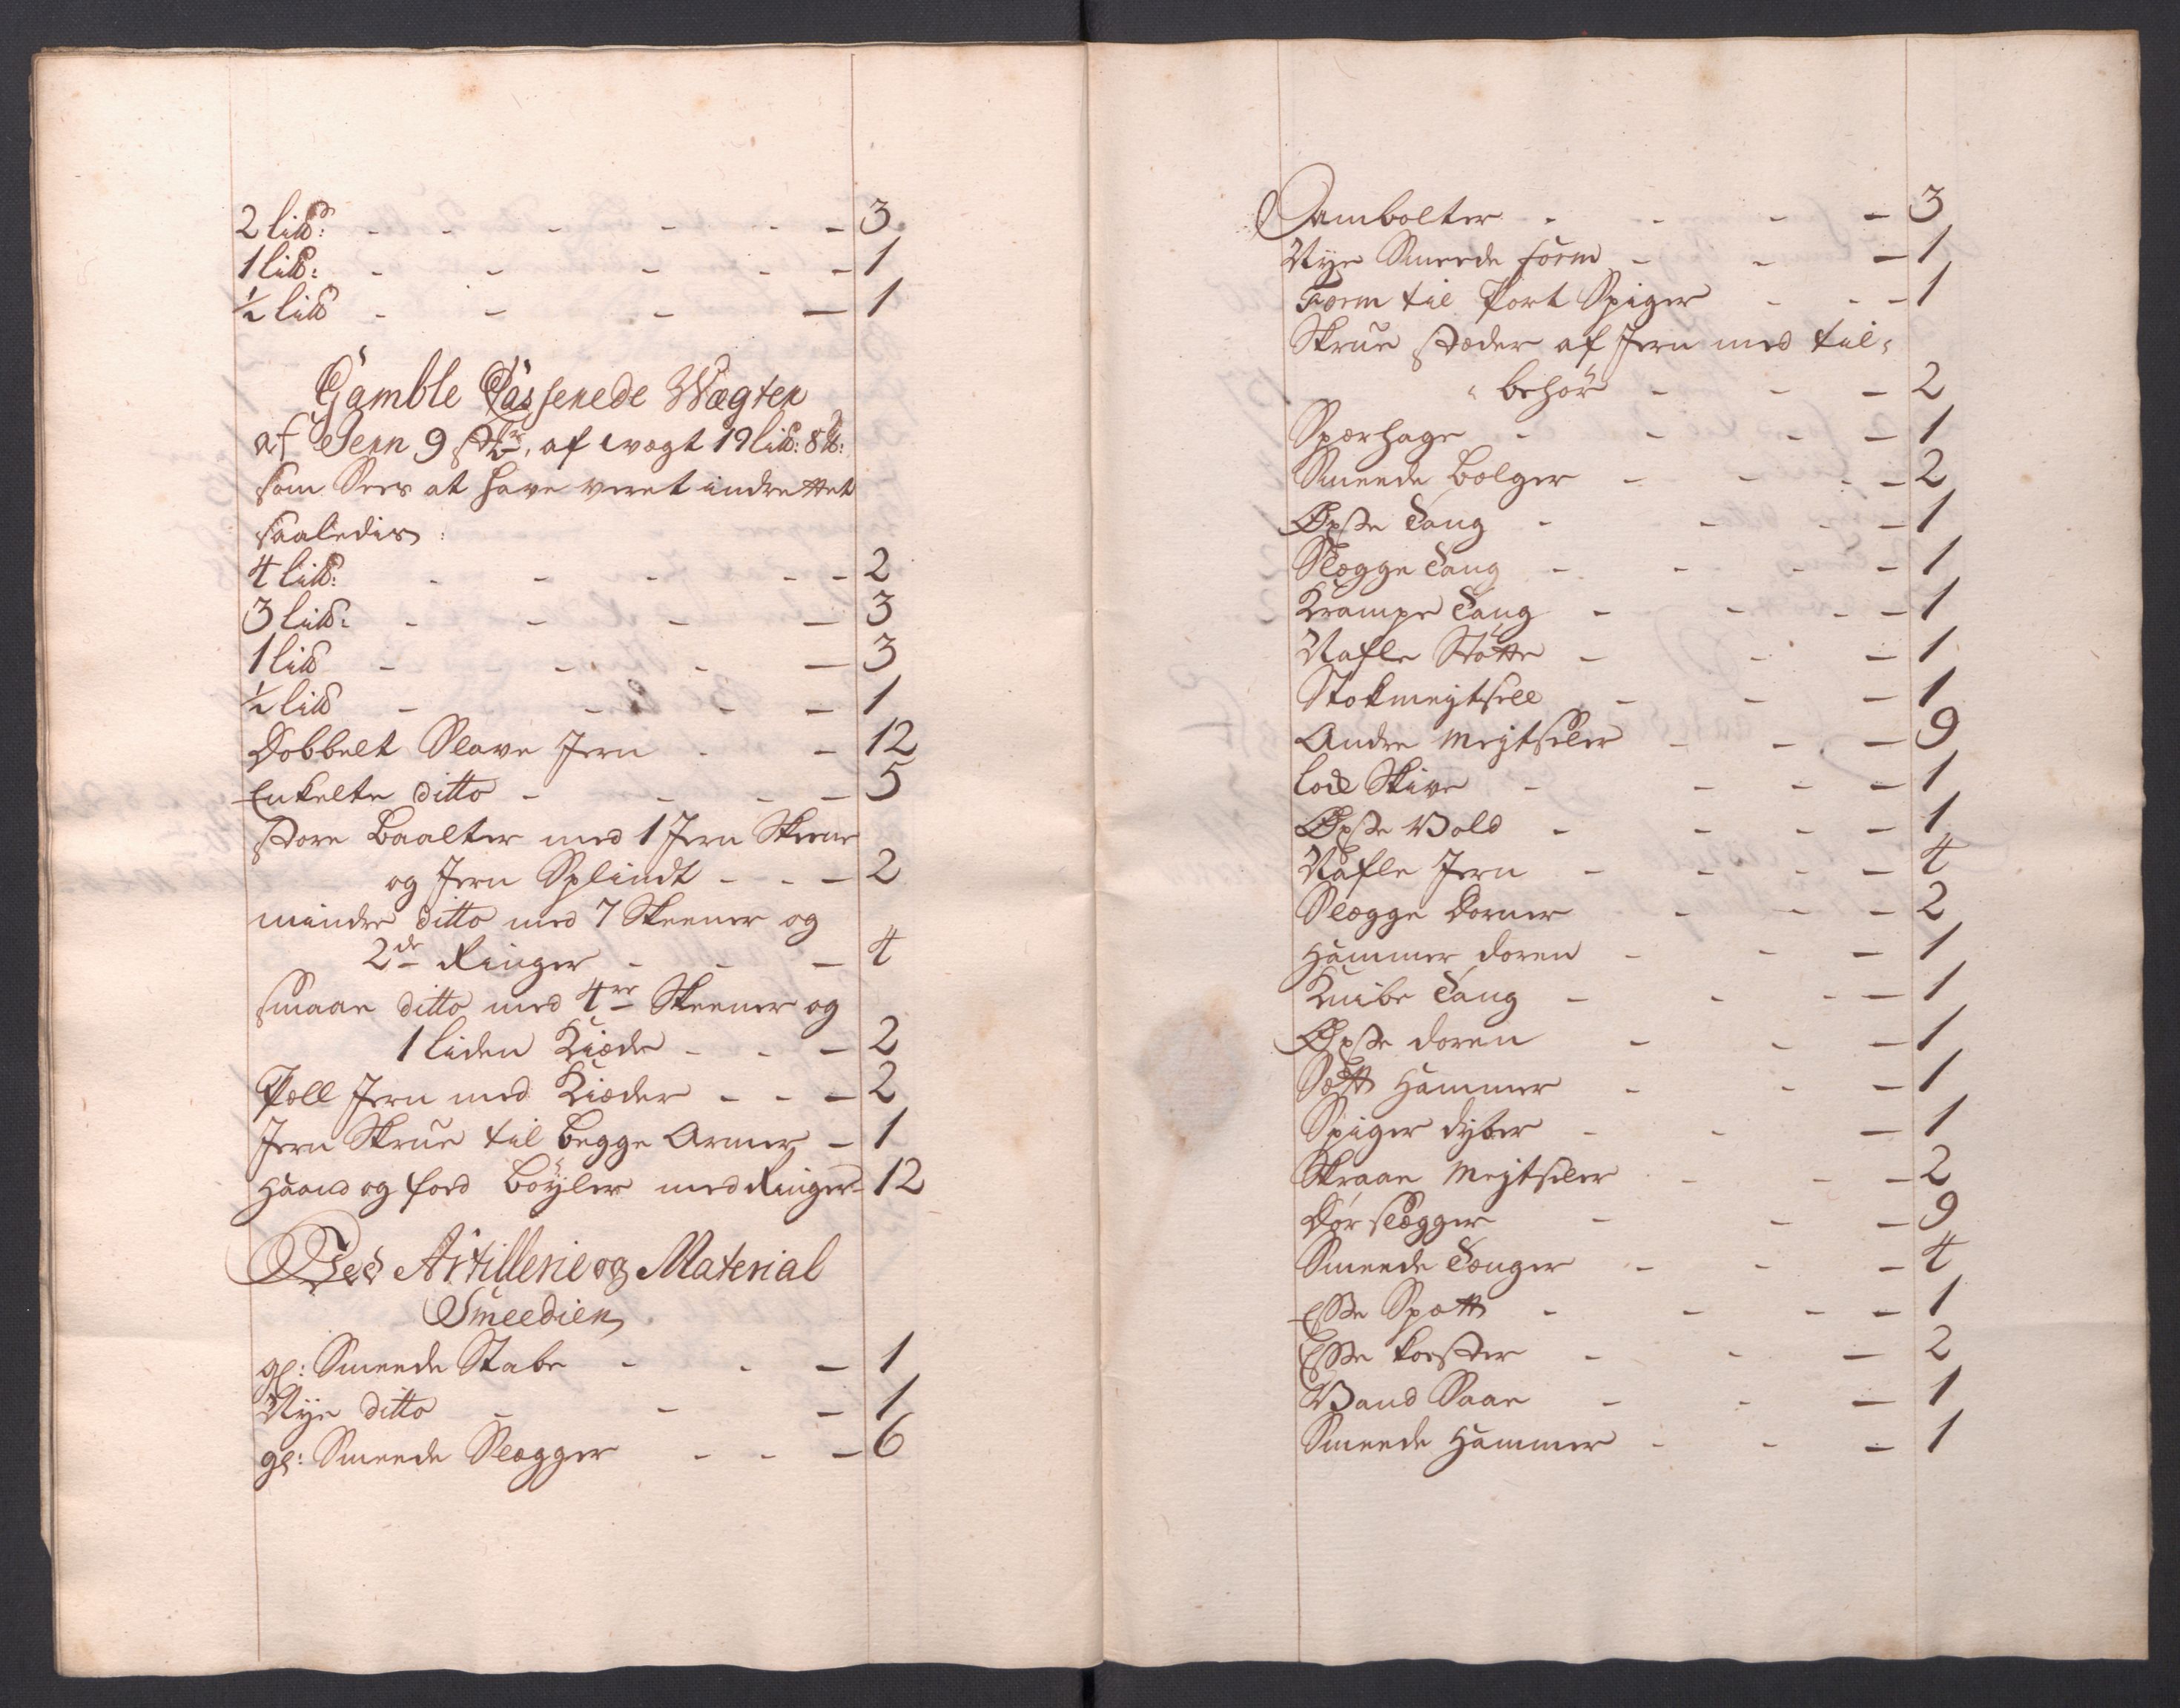 2 lib: - - - - - - 3
1 lib: - - - - - 1
½ lib - - - - 1
Gamble Casserede Wægter
af Jern 9 stk:, af wægt 19 lib: 8 lb:
som Sees at have veret indrettet
saaledis:
4 lib: - - - - - 2
3 lib: - - - - 3
1 lib - - - - 3
½ lib - - - - 1
Dobbelt Slave Jern - - 12
Enkelte ditto - - - - 5
store Baalter med 1 Jern Skeene
og Jern Splindt - - - 2
mindre ditto med 7 Skeener og
2de Ringer - - - 4
smaae ditto med 4re Skeener og
1 liden Kiæde - - - 2
Pæll Jern med Kiæder - - - 2
Jern Skrue til begge Armer - 1
Haand og foed Böyler med Ringer - 12
Ved Artillerie og Material
Smeedien
gl: Smeede Stabe - - - 1
Nye ditto - - - 1
gl: Smeede Slægger - - - 6
Ambolter - - - - 3
Nye Smeede form - - - 1
Form til Port Spiger - - - 1
Skrue stæder af Jern med til-
behör - - - 2
Spærhage - - - - 1
Smeede Bælger - - - - 2
Öxse Tang - - - - 1
Slægge Tang - - - - 1
Krampe Tang - - - - 1
Nafle Stötte - - - 1
Stokmeytsell - - - 1
Andre Meytseler - - - 9
Lode Skive - - - - 1
Öxse Vold - - - - 1
Nafle Jern - - - - 4
Slægge Dorner - - - 2
Hammer doren - - - 1
Knibe Tang - - - - 1
Öxse doren - - - 1
Sætt Hammer - - - 1
Spiger dyber - - - 1
Skraae Meytseler - - - 2
Dör slægger - - - 9
Smeede Tænger - - - 4
Esse Spætt - - - - 1
Esse koster - - - 2
Vand Saae - - - 1
Smeede Hammer - - - 1